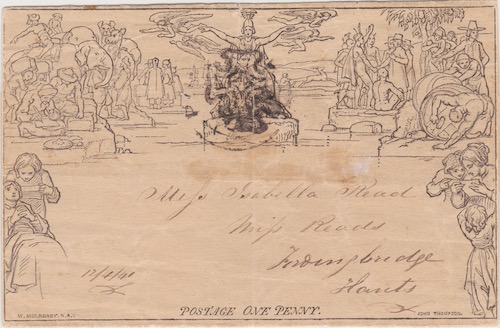 Miss Isabella Read
Miss Reads
Fordingbridge
Hants
12/4/41
POSTAGE ONE PENNY.
W. MULREADY. R.A.
JOHN THOMPSON.